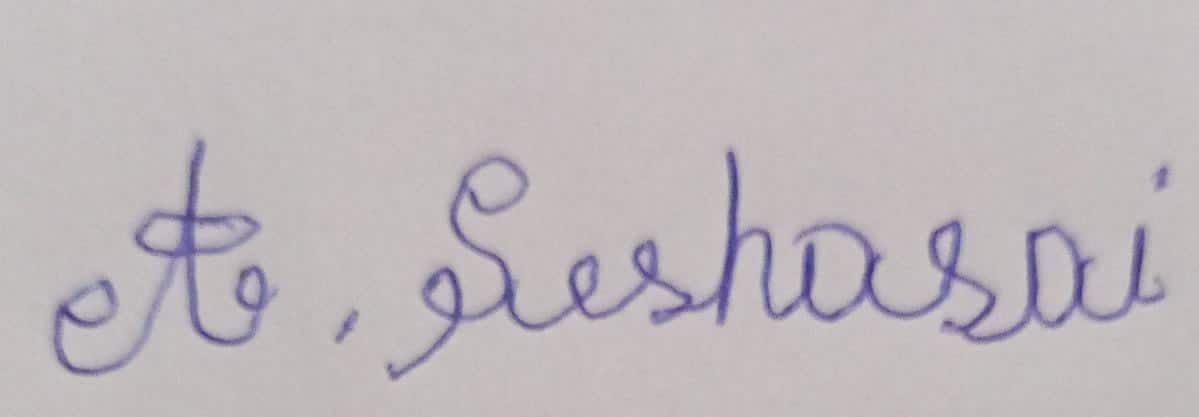 A. Seshasai